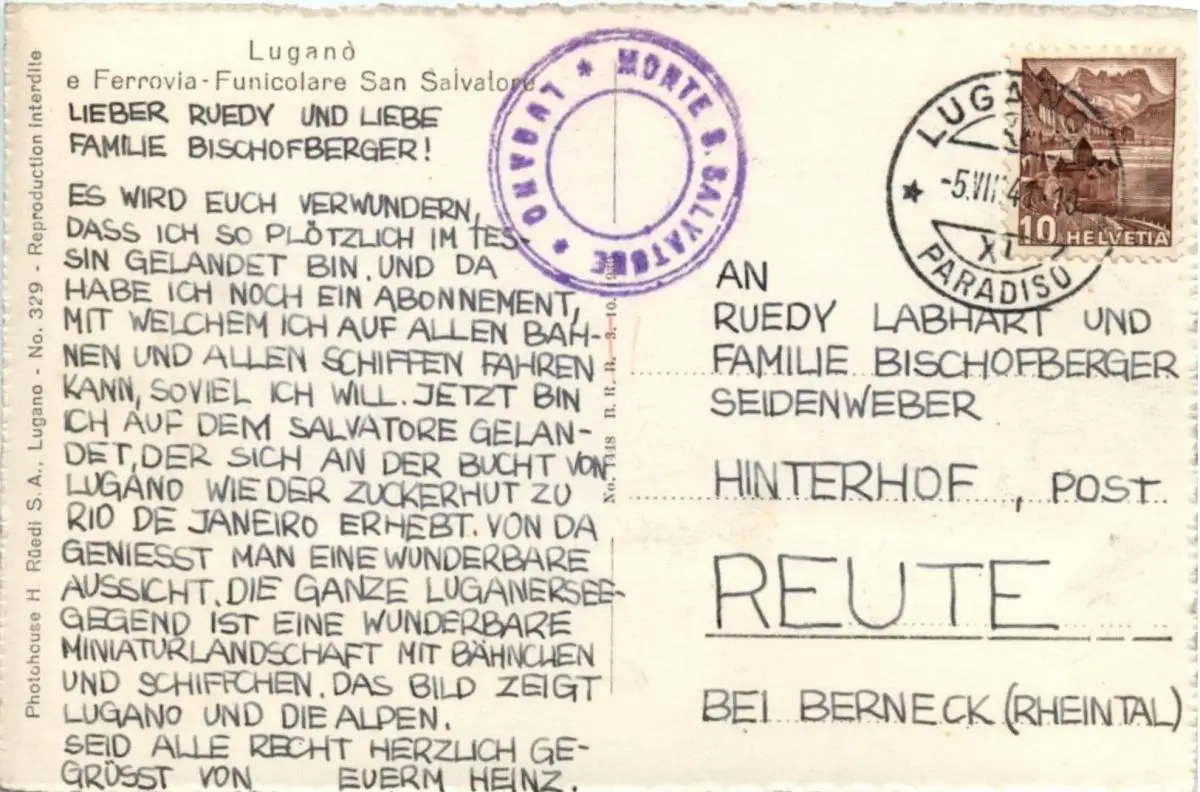 Luganò
e Ferrovia-Funicolare San Salvatore
LIEBER RUEDY UND LIEBE
FAMILIE BISCHOFBERGER!
ES WIRD EUCH VERWUNDERN,
DASS ICH SO PLÖTZLICH IM TES-
SIN GELANDET BIN. UND DA
HABE ICH NOCH EIN ABONNEMENT,
MIT WELCHEM ICH AUF ALLEN BAH-
NEN UND ALLEN SCHIFFEN FAHREN
KANN, SOVIEL ICH WILL. JETZT BIN
ICH AUF DEM SALVATORE GELAN-
DET, DER SICH AN DER BUCHT VON
LUGANO WIE DER ZUCKERHUT ZU
RIO DE JANEIRO ERHEBT. VON DA
GENIESST MAN EINE WUNDERBARE
AUSSICHT. DIE GANZE LUGANERSEE-
GEGEND IST EINE WUNDERBARE
MINIATURLANDSCHAFT MIT BÄHNCHEN
UND SCHIFFCHEN. DAS BILD ZEIGT
LUGANO UND DIE ALPEN.
SEID ALLE RECHT HERZLICH GE-
GRÜSST VON EUERM HEINZ.
Photohouse H. Rüedi S. A., Lugano - No. 329 - Reproduction interdite
LUGANO * MONTE S. SALVATORE *
B. R. B. 3. 10.
LUGANO
XI
PARADISO
10 HELVETIA
AN
RUEDY LABHART UND
FAMILIE BISCHOFBERGER
SEIDENWEBER
HINTERHOF, POST
REUTE
BEI BERNECK (RHEINTAL)